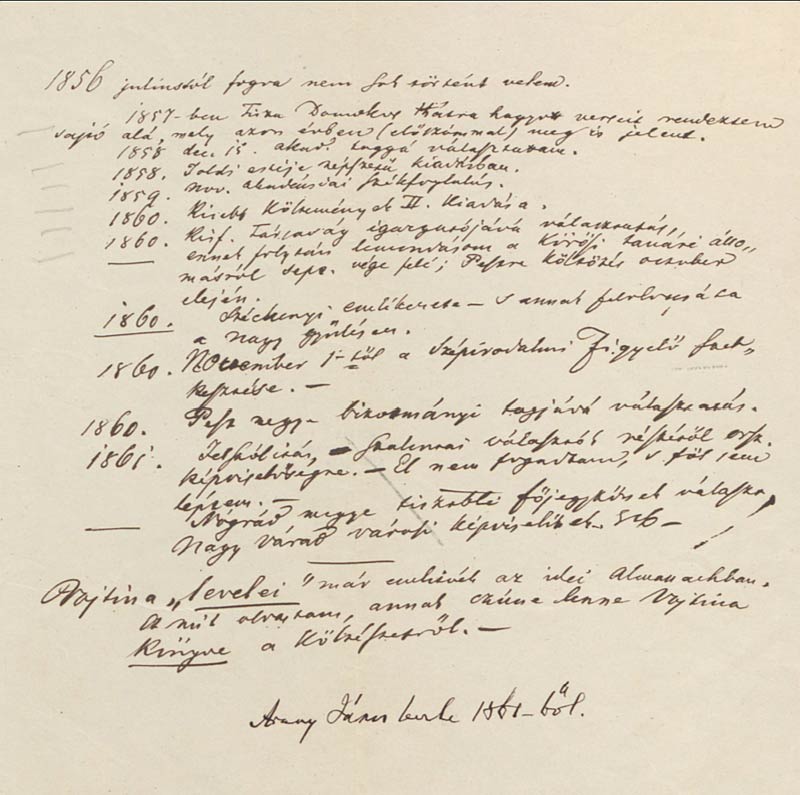 1856 juliustól fogva nem sok történt velem.
1857-ben Tisza Domokos hátra hagyott verseit rendeztem
sajtó alá, mely azon évben (előszómmal) meg is jelent.
1858 dec. 15. akad. taggá választatám.
1858. Toldi estéje népszerű kiadásban.
1859. nov. akadémiai székfoglalás.
1860. Kisebb Költemények II. kiadása.
1860. Kisf. Társaság igazgatójává választatás,
ennek folytán lemondásom a Kőrösi tanári állo„
másról sept. vége felé; Pestre költözés october
elején.
1860. Széchenyi emlékezete – s annak felolvasása
a nagy gyűlésen.
1860. November 1-től a Szépirodalmi Figyelő szer„
kesztése. –
1860. Pest megye bizotmányi tagjává választatás.
1861. Felszólitás, – Szalontai választók részéről orsz.
képviselőségre. – El nem fogadtam, s föl sem
léptem. –
Nógrád megye tiszteltb. főjegyzőnek választ,
Nagy várad városi képviselőnek. stb –
Vojtina „levelei" már említvék az idei Almanachban.
A mit olvastam, annak címe lenne Vojtina
Könyve a Költészetről. –
Arany János levele 1861-ből.